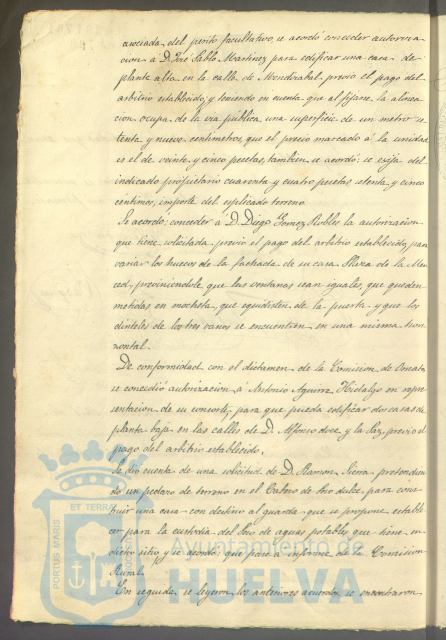 asociada del perito facultativo, se acordó: conceder autoriza-
cion á D. José Pablo Martinez para edificar una casa de
planta alta en la calle de Mendizabal previo el pago del
arbitrio establecido; y teniendo en cuenta que al fijarse la alinea-
cion ocupa de la via publica una superficie de un metro se-
tenta y nueve centimetros, que el precio marcado á la unidad
es el de veinte y cinco pesetas, tambien se acordó: se exija del
indicado propietario cuarenta y cuatro pesetas setenta y cinco
centimos, importe del esplicado terreno.
Se acordó: conceder á D. Diego Gomez Robles la autorizacion
que tiene solicitada previo el pago del arbitrio establecido, para
variar los huecos de la fachada de su casa Plaza de la Mer-
ced, previniendole que las ventanas sean iguales, que queden
metidas en mocheta, que equidisten de la puerta y que los
dinteles de los tres vanos se encuentren en una misma hori-
zontal.
De conformidad con el dictamen de la Comision de Ornato
se concedió autorizacion á Antonio Aguirre Hidalgo en repre-
sentacion de su consorte, para que pueda edificar dos casas de
planta baja en las calles de D. Alfonso doce y la Paz, previo el
pago del arbitrio establecido.
Se dió cuenta de una solicitud de D. Ramon Sierra pretendien-
do un pedazo de terreno en el Cabezo de dulce, para cons-
truir una casa con destino al guarda que se propone estable-
cer para la custodia del de aguas potables que tiene en
dicho sitio y se acordó: que pase á informe de la Comision
Rural.
En seguida se leyeron los anteriores acuerdos, se encontraron
ET TERRÆ
PORTUS MARIS
CUSTODIA
Ayuntamiento de
HUELVA